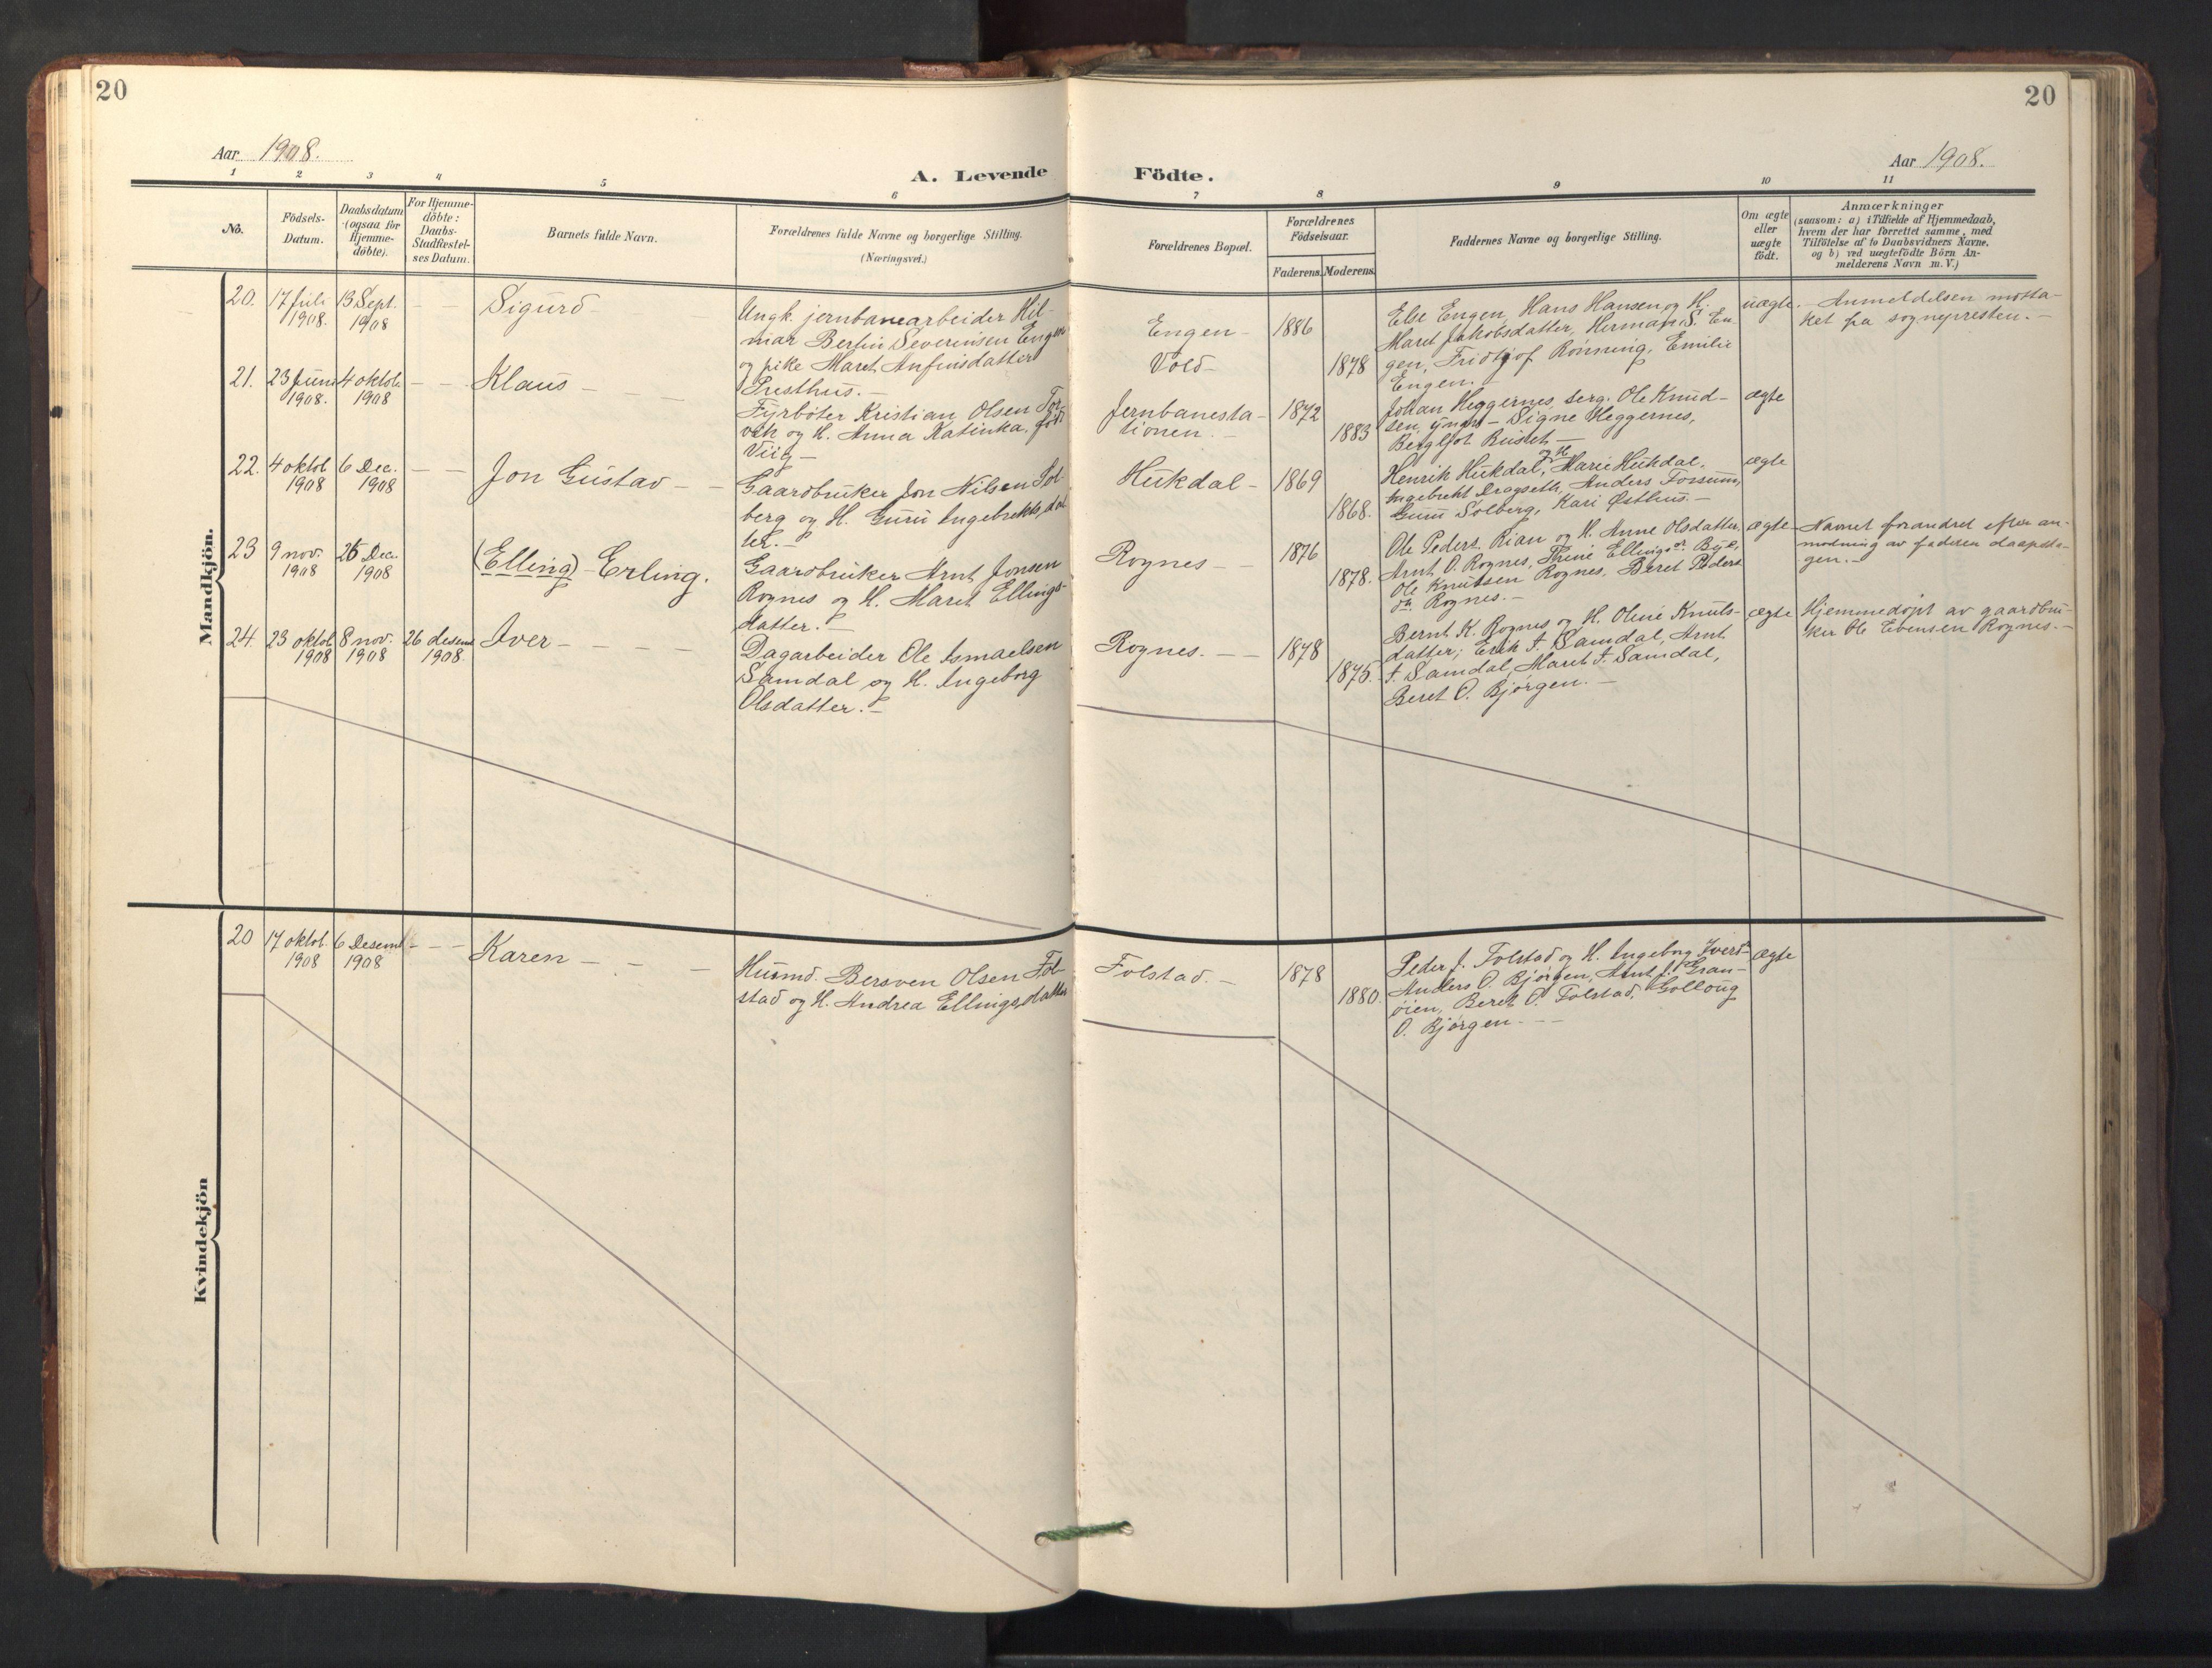 20
20
Aar 1908.
A. Levende Födte.
Aar 1908.
1 2 3 4 5 6 7 8 9 10 11
No.
Födsels-
Datum.
Daabsdatum
(ogsaa for
Hjemme-
döbte).
For Hjemme-
döbte:
Daabs-
Stadfæstel-
ses Datum.
Barnets fulde Navn.
Forældrenes fulde Navne og borgerlige Stilling.
(Næringsvei.)
Forældrenes Bopæl.
Forældrenes
Födselsaar.
Faderens. Moderens.
Faddernes Navne og borgerlige Stilling.
Om ægte
eller
uægte
födt.
Anmærkninger
(saasom: a) i Tilfælde af Hjemmedaab,
hvem der har forrettet samme, med
Tilföielse af to Daabsvidners Navne,
og b) ved uægtefödte Börn An-
melderens Navn m. V.)
Mandkjön.
20. 17 juli 1908. 13 Sept. 1908 — — Sigurd —
Ungk. jernbanearbeider Hil-
mar Bertin Severinsen Engen
og pike Maret Anfinsdatter
Presthus. —
Engen —
Vold —
1886
1878
Else Engen, Hans Hansen og H.
Maret Jakobsdatter, Herman S. En-
gen, Fridtjof Rönning, Emilie
Engen. —
uægte. — Anmeldelsen motta-
ket fra sognepresten. —
21. 23 Juni 1908. 4 oktob. 1908 — — Klaus — — —
Fyrböter Kristian Olsen Tor-
vik og H. Anna Katinka, föd.
Viig —
Jernbanesta-
tionen. —
1872
1883
Johan Heggernes, serg. Ole Knud-
sen, yngre — Signe Heggernes,
Bergljot —
ægte
22. 4 oktob 1908 6 Dec. 1908 — — Jon Gustav — —
Gaardbruker Jon Nilsen Sol-
berg og H. Guru Ingebrektsdat
ter. —
Hukdal —
1869
1868.
Henrik Hukdal, og H. Marie Hukdal,
Ingebrekt Dragseth, Anders Forsum,
Guru Solberg, Kari Østhus. —
ægte
23 9 nov. 1908 26 Dec. 1908 (Elling) — Erling.
Gaardbruker Arnt Jonsen
Rognes og H. Maret Ellings-
datter. —
Rognes — —
1876
1878.
Ole Peders. Rian og H. Anne Olsdatter,
Arnt O. Rognes, Thrine Ellingsdr. Bye,
Ole Knutsen Rognes, Beret Peders
dr. Rognes. —
ægte — Navnet forandret efter an-
modning av faderen daapsda-
gen. —
24. 23 oktob. 1908 8 nov. 1908 26 desemb 1908. Iver — — — —
Dagarbeider Ole Ismaelsen
Samdal og H. Ingeborg
Olsdatter. —
Rognes. — —
1878
1875.
Bernt K. Rognes og H. Oline Knuts-
datter; Erik I. Samdal, Arnt
I. Samdal, Maret I. Samdal,
Beret O. Bjørgen. —
ægte Hjemmedöpt av gaardbru-
ker Ole Ebensen Rognes. —
Kvindekjön
20 17 oktob. 1908 6 Desemb 1908 — — — Karen — — —
Husmd. Bersven Olsen Fol-
stad og H. Andrea Ellingsdatter
Folstad. —
1878
1880.
Peder J. Folstad og H. Ingeborg Iversdr.
Anders O. Bjørgen, Arnt J. Gran-
öien, Beret O. Folstad, Gollaug
O. Bjørgen. — —
ægte